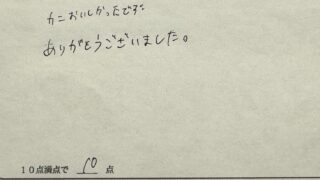 カニおいしかったです。
ありがとうございました。
10点満点で 10 点